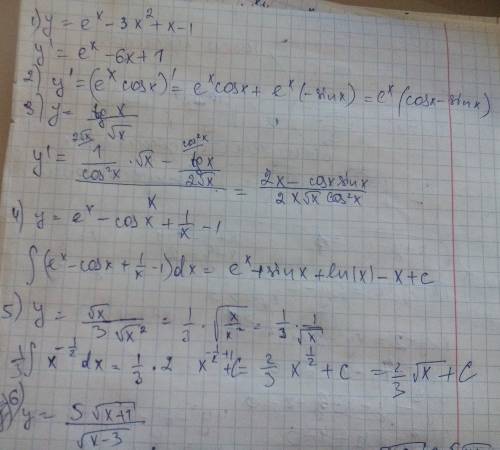 1) y = eˣ - 3x² + x - 1
y' = eˣ - 6x + 1
2) y' = (eˣ cosx)' = eˣ cosx + eˣ (-sinx) = eˣ (cosx - sinx)
3) y = tg x / √x
y' = (1/cos²x · √x - tg x / 2√x) / x = (2x - cosx sinx) / (2x√x cos²x)
4) y = eˣ - cosx + 1/x - 1
∫(eˣ - cosx + 1/x - 1)dx = eˣ - sinx + ln(x) - x + c
5) y = √x / 3√x² = 1/3 · √(x/x²) = 1/3 · 1/√x
1/3 ∫ x^(-1/2) dx = 1/3 · 2 x^(-1/2+1) + C = 2/3 x^(1/2) + C = 2/3 √x + C
6) y = 5√(x+1) / √(x-3)